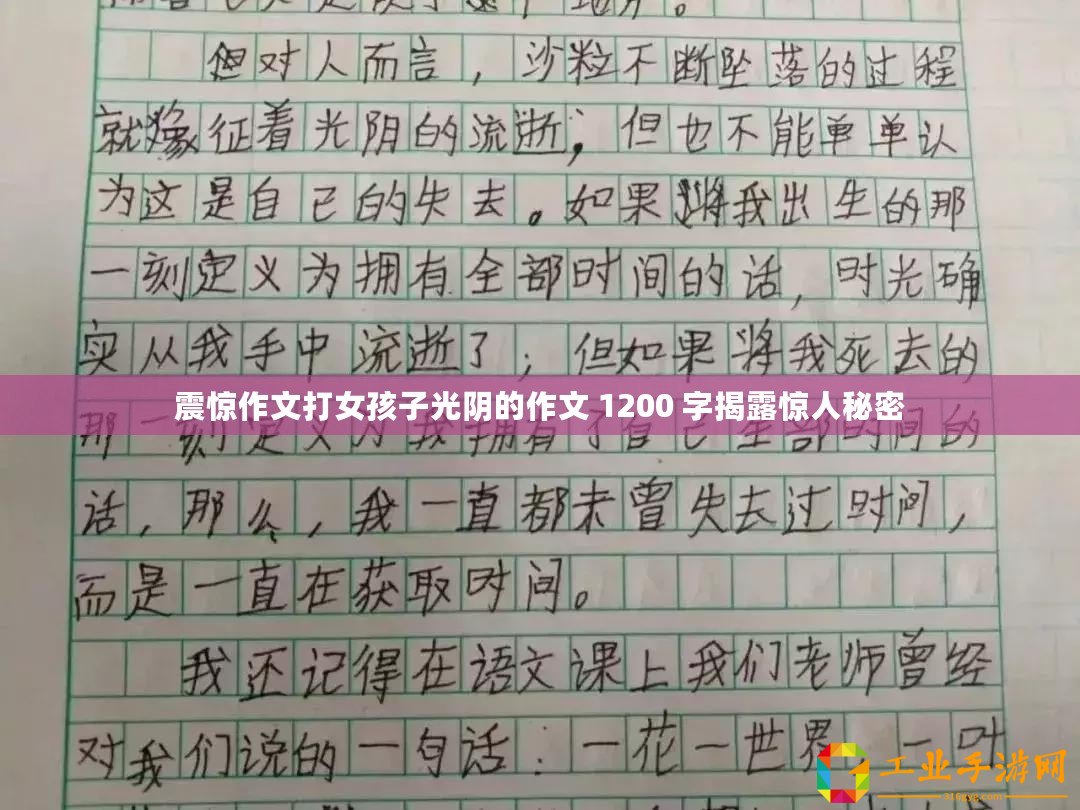 但对人而言，沙粒不断坠落的过程
就像征着光阴的流逝；但也不能单单认
为这是自己的失去。如果将我出生的那
一刻定义为拥有全部时间的话，时光确
实从我手中流逝了；但如果将我死去的
震惊作文打女孩子光阴的作文 1200 字揭露惊人秘密
那一刻定义为我拥有了自己全部时间的
话，那么，我一直都未曾失去过时间，
而是一直在获取时间。
我还记得在语文课上我们老师曾经
对我们说的一句话：一花一世界 一叶
工业手游网
316gyg.com